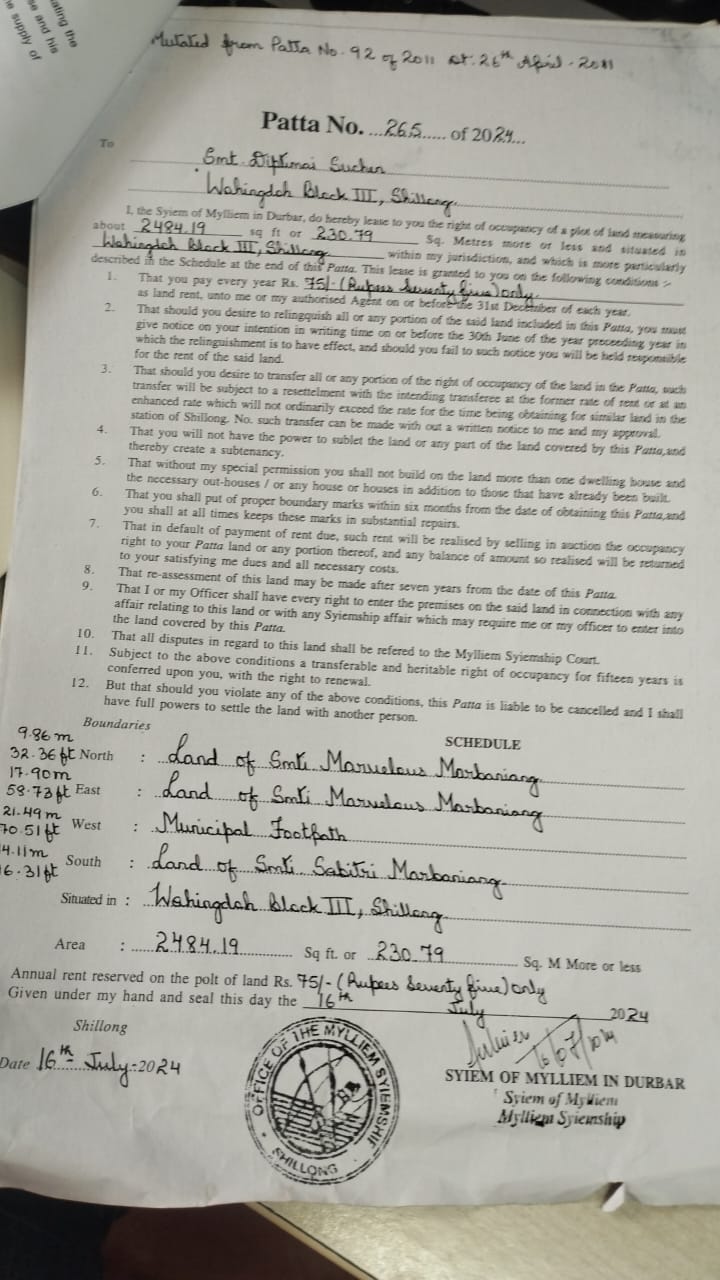 ating the
se and his
e supply of
Mutated from Patta No. 92 of 2011 dt. 26th April - 2011
Patta No. ...265..... of 2024...
To
Smt. Diptimai Suchen
Wahingdoh Block III, Shillong.
I, the Syiem of Mylliem in Durbar, do hereby lease to you the right of occupancy of a plot of land measuring
about 2484.19 sq ft or 230.79 Sq. Metres more or less and situated in
Wahingdoh Block III, Shillong within my jurisdiction, and which is more particularly
described in the Schedule at the end of this Patta. This lease is granted to you on the following conditions :-
1. That you pay every year Rs. 75/- (Rupees Seventy five) only.
as land rent, unto me or my authorised Agent on or before the 31st December of each year.
2. That should you desire to relingquish all or any portion of the said land included in this Patta, you must
give notice on your intention in writing time on or before the 30th June of the year preceeding year in
which the relinguishment is to have effect, and should you fail to such notice you will be held responsible
for the rent of the said land.
3. That should you desire to transfer all or any portion of the right of occupancy of the land in the Patta, such
transfer will be subject to a resettelment with the intending transferee at the former rate of rent or at an
enhanced rate which will not ordinarily exceed the rate for the time being obtaining for similar land in the
station of Shillong. No. such transfer can be made with out a written notice to me and my approval.
4. That you will not have the power to sublet the land or any part of the land covered by this Patta,and
thereby create a subtenancy.
5. That without my special permission you shall not build on the land more than one dwelling house and
the necessary out-houses / or any house or houses in addition to those that have already been built.
6. That you shall put of proper boundary marks within six months from the date of obtaining this Patta,and
you shall at all times keeps these marks in substantial repairs.
7. That in default of payment of rent due, such rent will be realised by selling in auction the occupancy
right to your Patta land or any portion thereof, and any balance of amount so realised will be returned
to your satisfying me dues and all necessary costs.
8. That re-assessment of this land may be made after seven years from the date of this Patta.
9. That I or my Officer shall have every right to enter the premises on the said land in connection with any
affair relating to this land or with any Syiemship affair which may require me or my officer to enter into
the land covered by this Patta.
10. That all disputes in regard to this land shall be refered to the Mylliem Syiemship Court.
11. Subject to the above conditions a transferable and heritable right of occupancy for fifteen years is
conferred upon you, with the right to renewal.
12. But that should you violate any of the above conditions, this Patta is liable to be cancelled and I shall
have full powers to settle the land with another person.
Boundaries SCHEDULE
9.86 m
32.36 ft North : Land of Smti Marvelous Marbaniang
17.90m
58.73 ft East : Land of Smti Marvelous Marbaniang
21.49m
70.51 ft West : Municipal Footpath
4.11m
6.31ft South : Land of Smti Sabitri Marbaniang
Situated in : Wahingdoh Block III, Shillong
Area : 2484.19 Sq ft. or 230.79 Sq. M More or less
Annual rent reserved on the polt of land Rs. 75/- (Rupees Seventy five) only
Given under my hand and seal this day the 16th July 2024
Shillong
Date 16th July-2024
SYIEM OF MYLLIEM IN DURBAR
Syiem of Mylliem
Mylliem Syiemship
OFFICE OF THE MYLLIEM SYIEMSHIP
SHILLONG